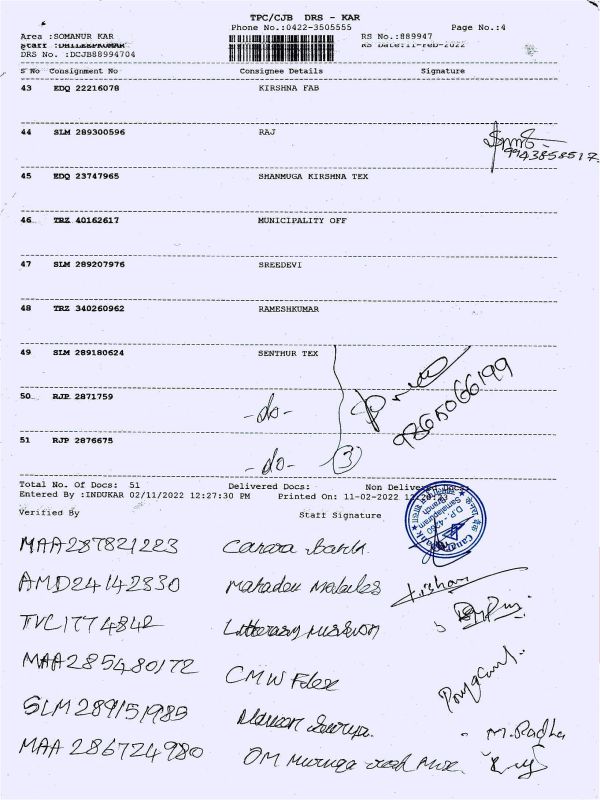 TPC/CJB DRS - KAR
Phone No.:0422-3505555 Page No.:4
Area :SOMANUR KAR RS No.:889947
Staff :DHILEEPKUMAR RS Date:11-Feb-2022
DRS No. :DCJB88994704
S No Consignment No Consignee Details Signature
43 EDQ 22216078 KIRSHNA FAB
44 SLM 289300596 RAJ
9943858517
45 EDQ 23747965 SHANMUGA KIRSHNA TEX
46 TRZ 40162617 MUNICIPALITY OFF
47 SLM 289207976 SREEDEVI
48 TRZ 340260962 RAMESHKUMAR
49 SLM 289180624 SENTHUR TEX
9865066199
50 RJP 2871759 -do-
51 RJP 2876675 -do- 3
Total No. Of Docs: 51 Delivered Docs: Non Delivered Docs:
Entered By :INDUKAR 02/11/2022 12:27:30 PM Printed On: 11-02-2022
Verified By Staff Signature
MAA287821223 Canara Bank
AMD24142330 Mahadev Kishor
TVC1774842
MAA285480172 CMW
SLM289151985 M.Radha
MAA286724980 OM Muruga